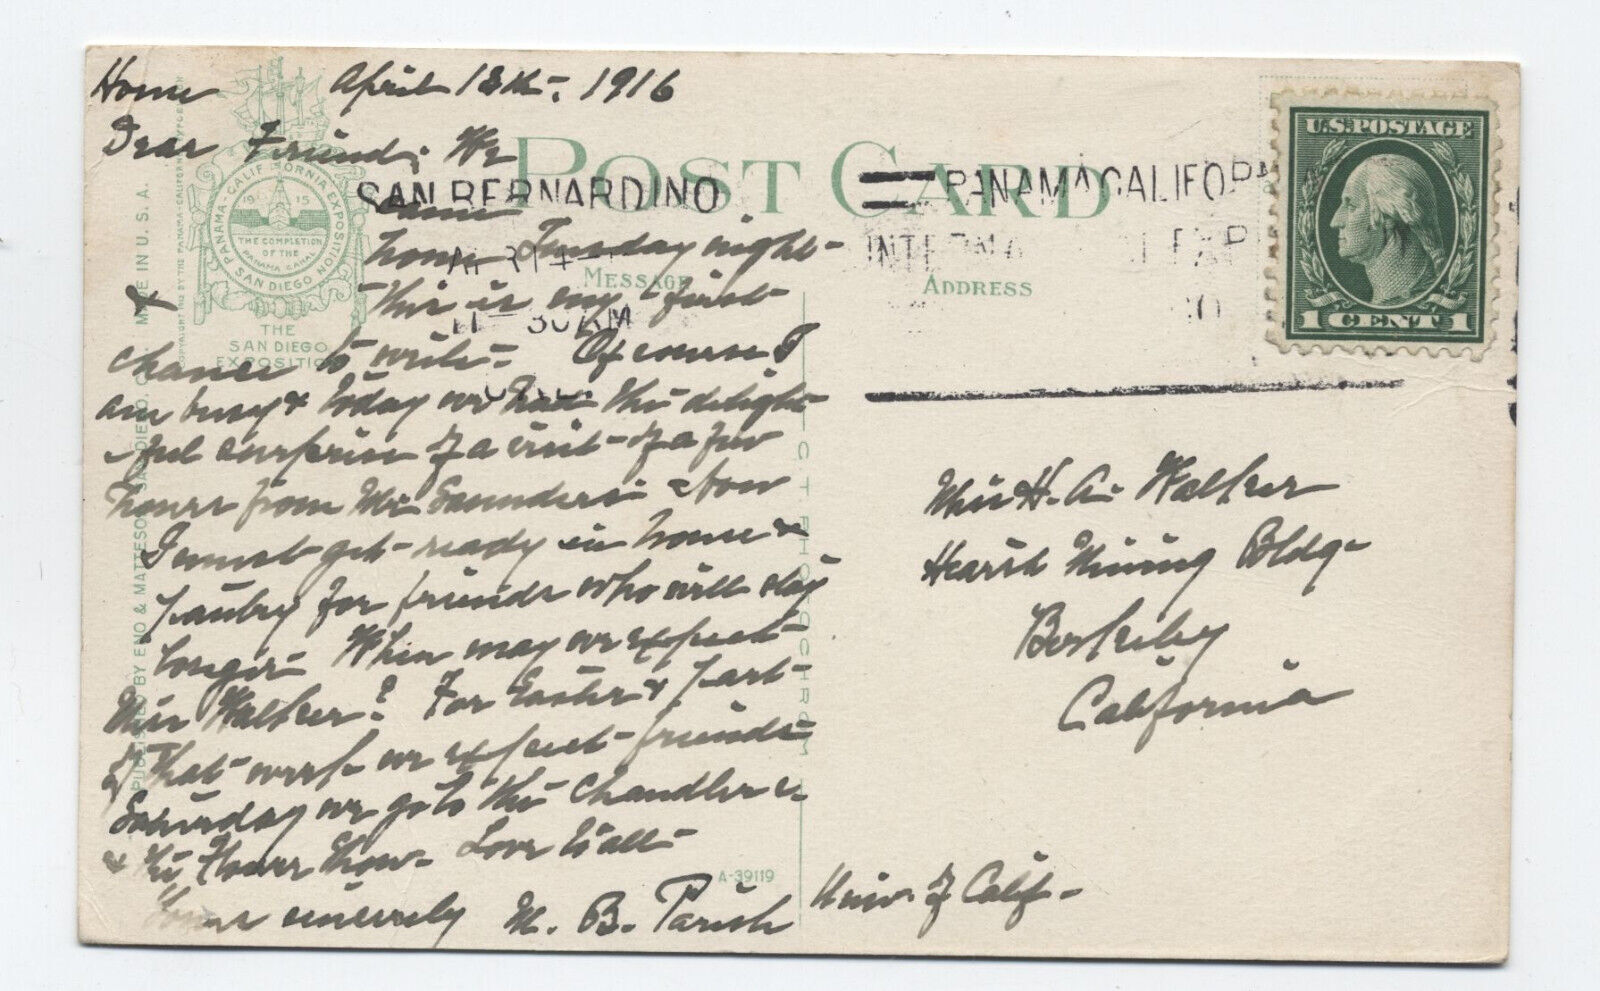 Home April 13th, 1916
Dear Friend; We
came
home Tuesday night-
this is my first
chance to write. Of course I
am busy & today we had the delight-
ful surprise of a visit of a few
hours from Mr Saunders. Now
I must get ready in house &
pantry for friends who will stay
longer. When may we expect
Miss Walker? For Easter & part
of that week we expect friends
Saturday we go to the Chandlers
& the Flower Show. Love to all
Yours sincerely M. B. Parish
POST CARD
MESSAGE
ADDRESS
SAN BERNARDINO
30 AM
PANAMA CALIFOR
U.S. POSTAGE
1 CENT 1
Miss H. A. Walker
Hearst Mining Bldg-
Berkeley
California
Univ. of Calif-
PANAMA-CALIFORNIA EXPOSITION
SAN DIEGO
1915
THE COMPLETION
OF THE
PANAMA CANAL
THE
SAN DIEGO
EXPOSITION
MADE IN U. S. A.
PUBLISHED BY ENO & MATTESON, SAN DIEGO, C
C T PHOTOCHROM
A-39119